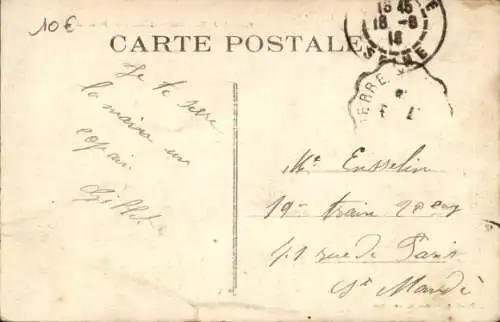 10€
CARTE POSTALE
15 45
18 - 8
16
SEINE
Je te serre
la main un
copain
Gillet
Mr Ensselin
19e train 20e
41 rue de Paris
St Mandé